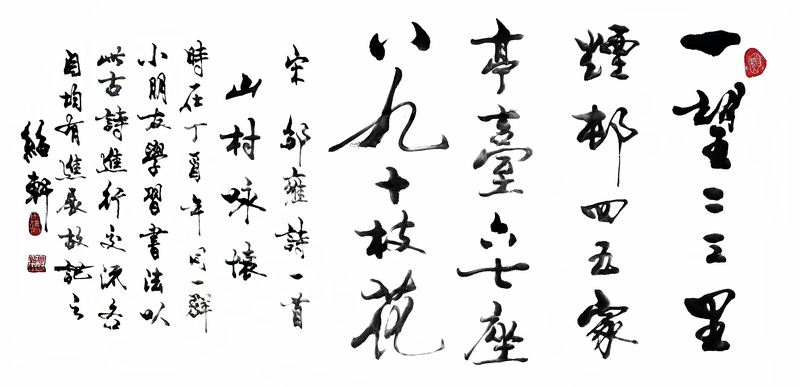 一望二三里
煙邨四五家
亭臺六七座
八九十枝花
宋 邵雍詩一首
山村咏懷
時在丁酉年同一群
小朋友學習書法以
此古詩進行交流各
自均有進展故記之
軒